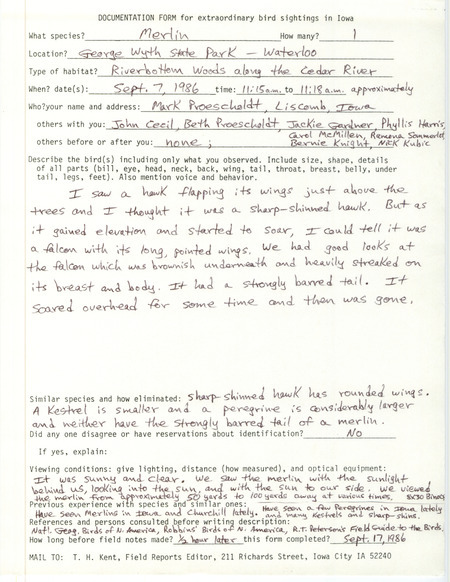 DOCUMENTATION FORM for extraordinary bird sightings in Iowa
What species? Merlin How many? 1
Location? George Wyth State Park - Waterloo
Type of habitat? Riverbottom Woods along the Cedar River
When? date(s): Sept. 7, 1986 time: 11:15 a.m. to 11:18 a.m. approximately
Who?your name and address: Mark Proescholdt, Liscomb, Iowa
others with you: John Cecil, Beth Proescholdt, Jackie Gardner, Phyllis Harris,
Carol McMillen, Ramona Sommerlot,
others before or after you: none; Bernie Knight, Nick Kubic
Describe the bird(s) including only what you observed. Include size, shape, details
of all parts (bill, eye, head, neck, back, wing, tail, throat, breast, belly, under
tail, legs, feet). Also mention voice and behavior.
I saw a hawk flapping its wings just above the
trees and I thought it was a sharp-shinned hawk. But as
it gained elevation and started to soar, I could tell it was
a falcon with its long, pointed wings. We had good looks at
the falcon which was brownish underneath and heavily streaked on
its breast and body. It had a strongly barred tail. It
soared overhead for some time and then was gone.
Similar species and how eliminated: sharp-shinned hawk has rounded wings.
A Kestrel is smaller and a peregrine is considerably larger
and neither have the strongly barred tail of a merlin.
Did any one disagree or have reservations about identification? No
If yes, explain:
Viewing conditions: give lighting, distance (how measured), and optical equipment:
It was sunny and clear. We saw the merlin with the sunlight
behind us, looking into the sun, and with the sun to our side. We viewed
the merlin from approximately 50 yards to 100 yards away at various times. 8x30 Binocs
Previous experience with species and similar ones: Have seen a few Peregrines in Iowa lately
Have seen Merlins in Iowa and Churchill lately. and many Kestrels and sharp-shins.
References and persons consulted before writing description:
Nat'l. Geog. Birds of N. America, Robbins' Birds of N. America, R.T. Peterson's Field Guide to the Birds.
How long before field notes made? 1/2 hour later this form completed? Sept. 17, 1986
MAIL TO: T. H. Kent, Field Reports Editor, 211 Richards Street, Iowa City IA 52240